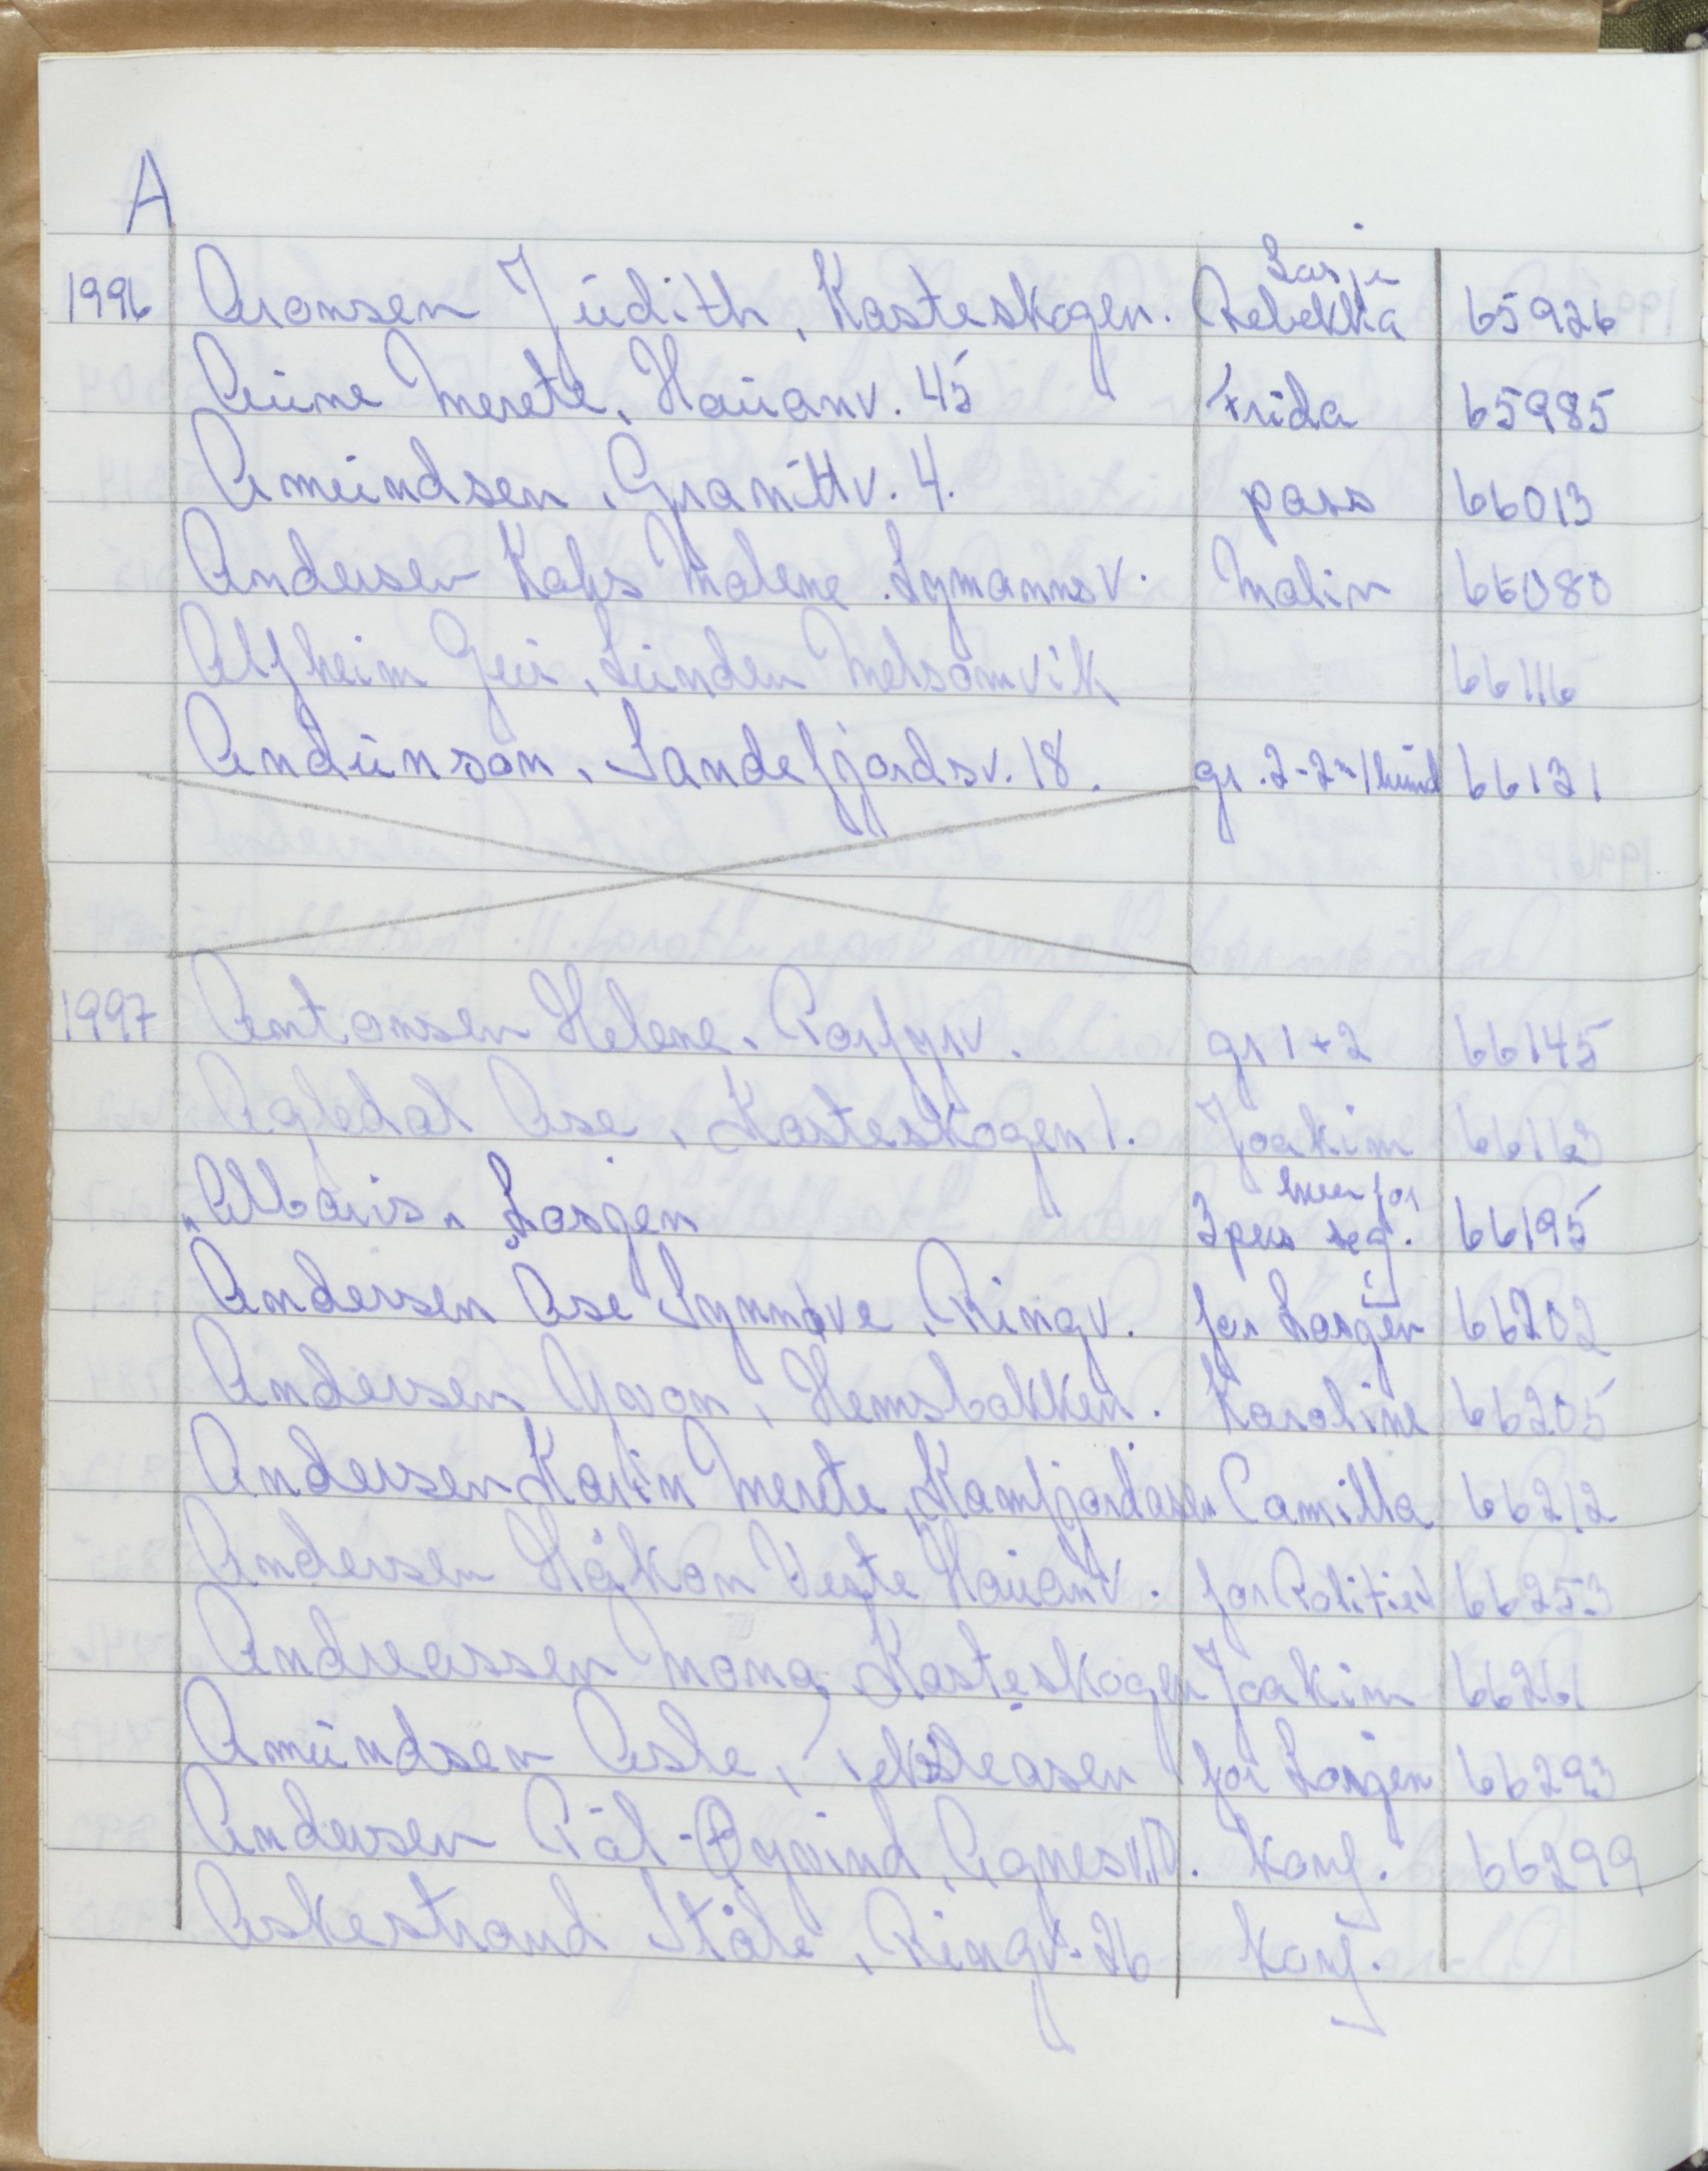 A
1996 Aronsen Judith, Kasteskogen. Rebekka 65926
Aune Merete, Hauanv. 45 Frida 65985
Amundsen, Granittv. 4. pass 66013
Andersen Kahs Malene. Lymannsv. Malin 66080
Alfheim Geir, Lunden Melsomvik 66116
Andunson, Sandefjordsv. 18. gr. 2-2 m/hund 66131
1997 Antonsen Helene, Porfyrv. gr 1+2 66145
Agledal Åse, Kasteskogen 1. Joakim 66163
"Albaris" Losjen 3 pers 66195
Andersen Åse Synnøve, Ringv. for Losjen 66202
Andersen Yvon, Hemsbakken. Karoline 66205
Andersen Karin Merete, Kamfjordåsen Camilla 66212
Andersen Håkon Veste Hauanv. for Politiet 66253
Andreassen Mona, Kasteskogen Joakim 66261
Amundsen Asle, for Losjen 66293
Andersen Pål-Øyvind, Agnesv. Konf. 66299
Askestrand Ståle, Ringv. 26 Konf.